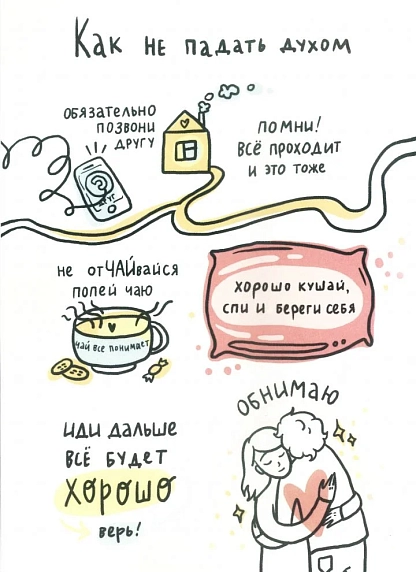 Как не падать духом
обязательно
позвони
другу
помни!
всё проходит
и это тоже
друг
не отЧАЙвайся
попей чаю
чай все понимает
хорошо кушай,
спи и береги себя
обнимаю
иди дальше
всё будет
хорошо
верь!